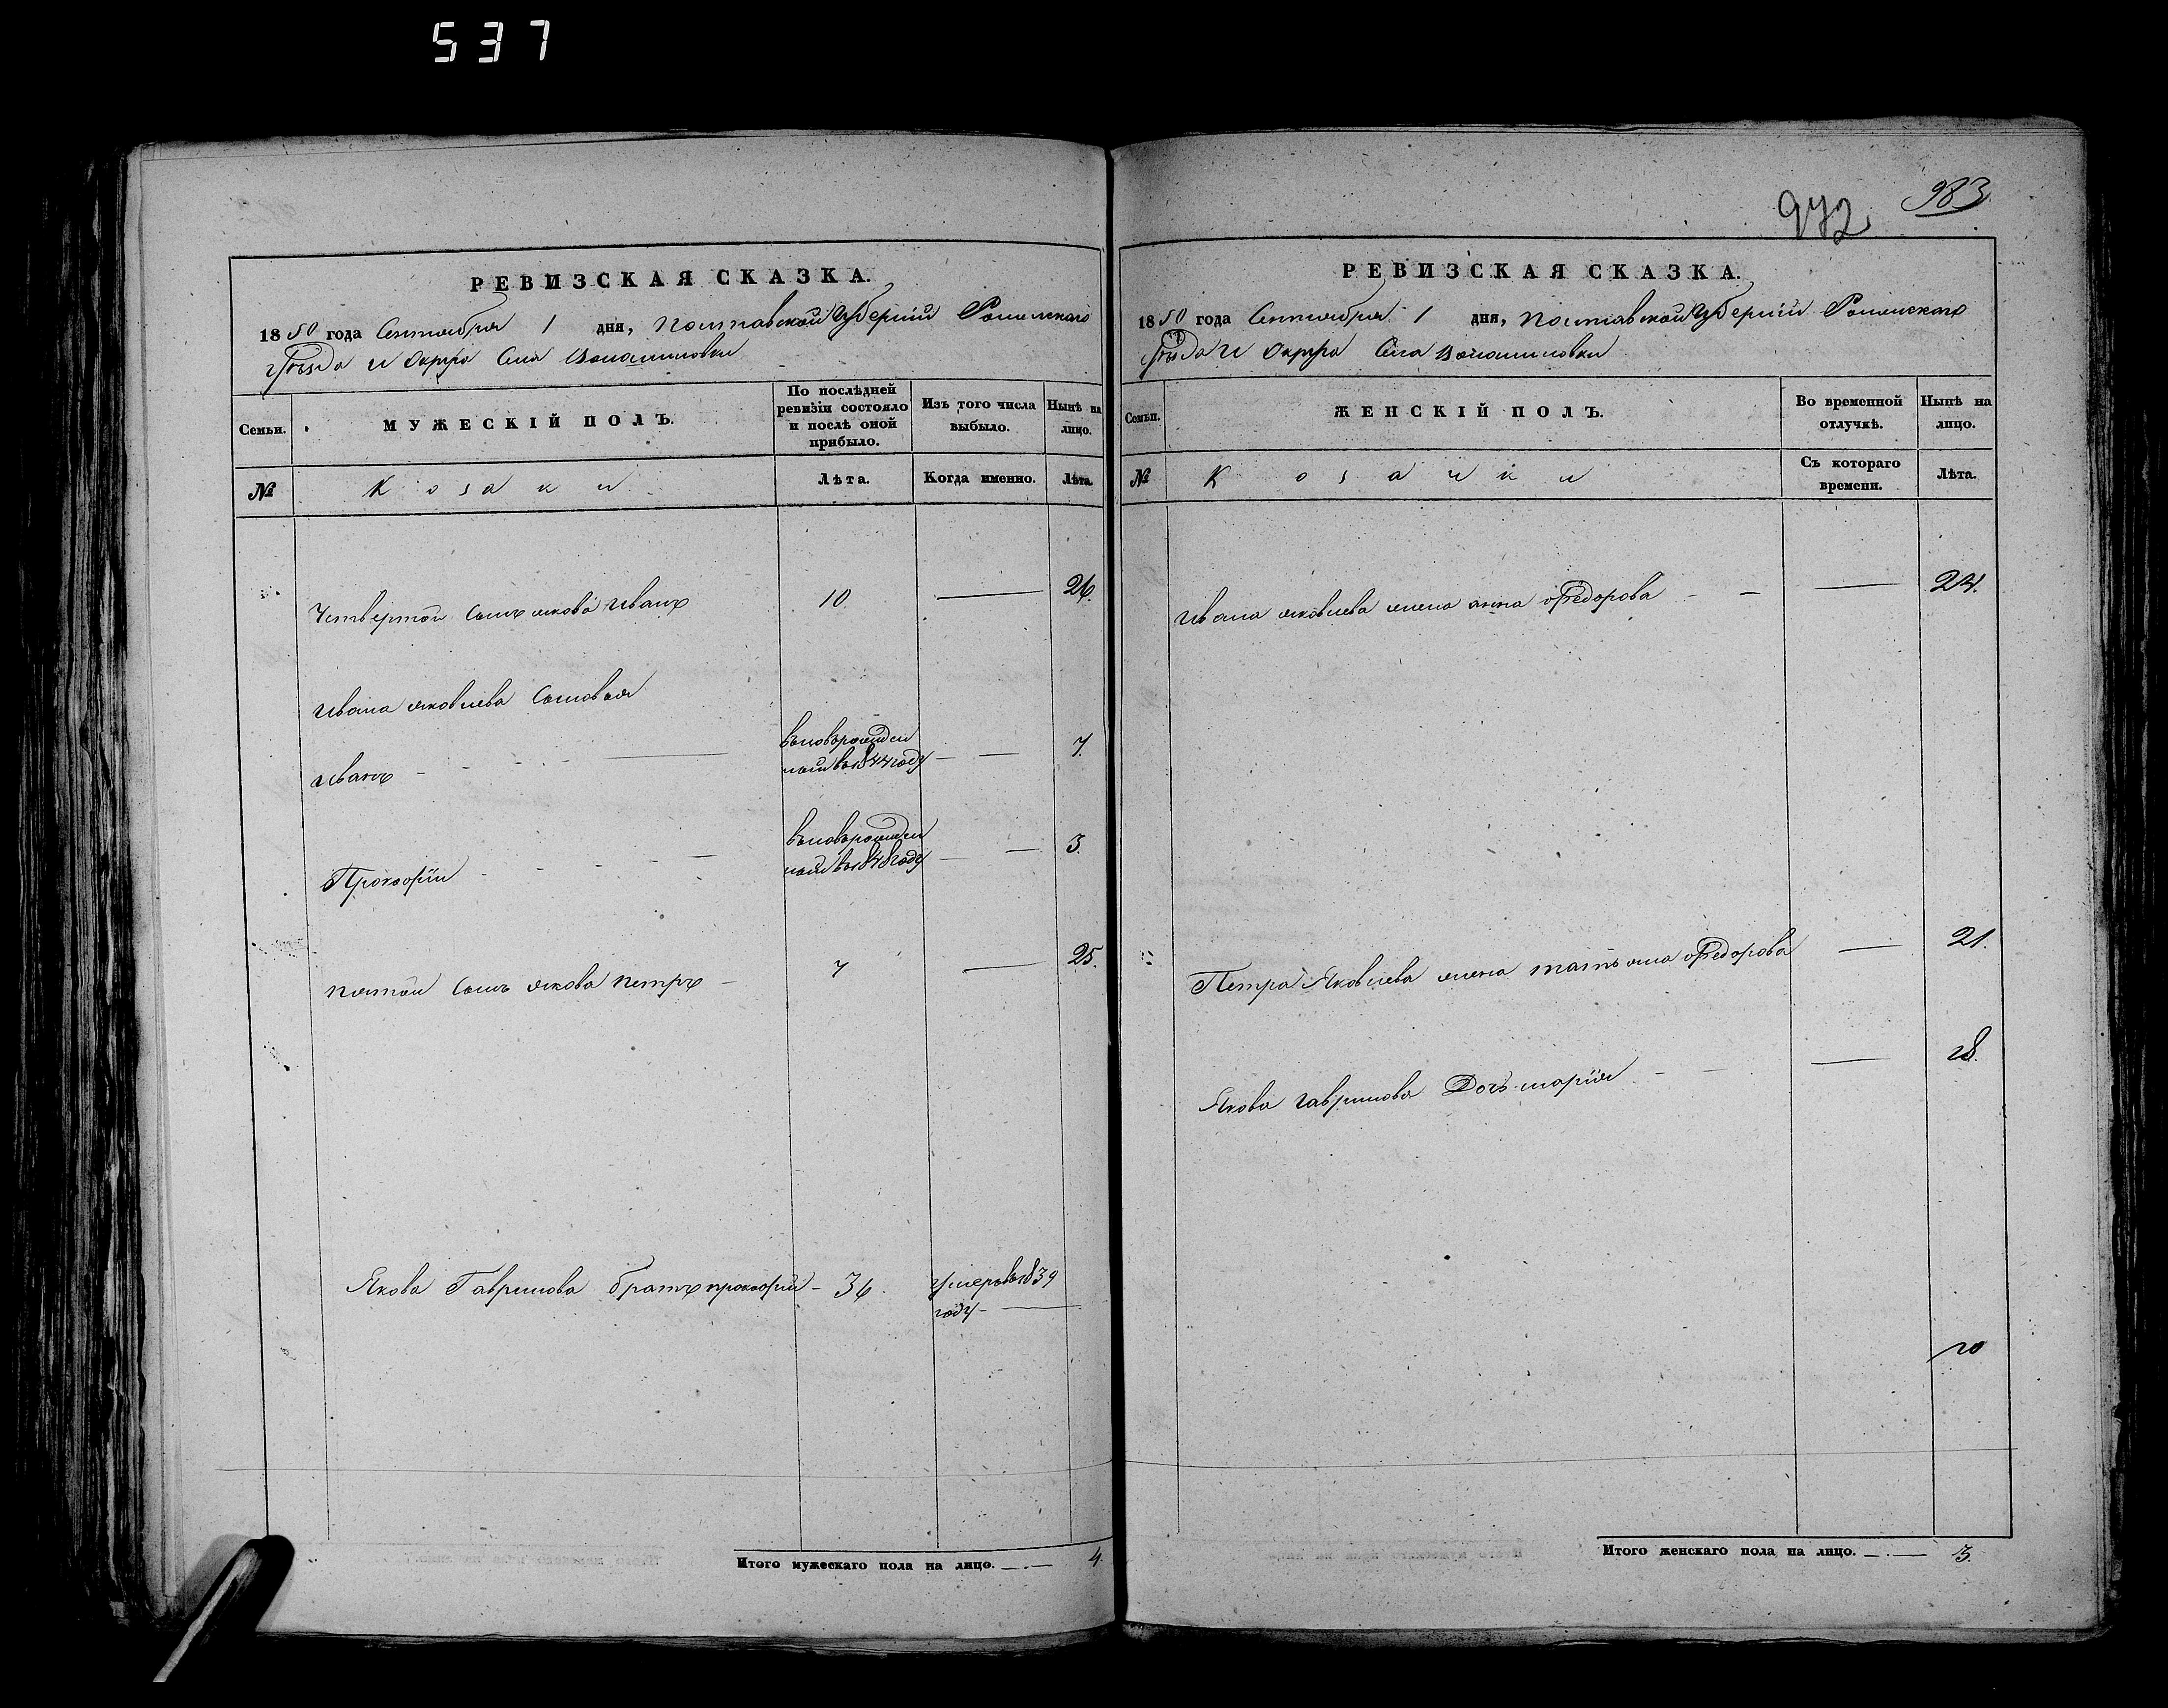 537
972 983
РЕВИЗСКАЯ СКАЗКА.
1850 года Сентября 1 дня, Полтавской Губернии Роменского
Уезда и Округа Села Волошиновки
Семьи. МУЖЕСКІЙ ПОЛЪ. По послѣдней ревизіи состояло и послѣ оной прибыло. Изъ того числа выбыло. Нынѣ на лицо.
№ Козаки Лѣта. Когда именно. Лѣта.
Четвертой сынъ якова иванъ 10 26.
ивана яковлева сыновья
иванъ вновьрожден
ной въ 1844 году 7.
Прокофіи вновьрожден
ной въ 1848 году 3.
пятой сынъ якова петръ 7 25.
Якова Гаврилова братъ прокофій 36. умеръ въ 1839
году
Итого мужескаго пола на лицо. 4.
РЕВИЗСКАЯ СКАЗКА.
1850 года Сентября 1 дня, Полтавской Губерніи Роменского
Уезда и Округа Села Волошиновки
Семьи. ЖЕНСКІЙ ПОЛЪ. Во временной отлучкѣ. Нынѣ на лицо.
№ Козачки Съ котораго времени. Лѣта.
ивана яковлева жена анна Федорова 24.
Петра Яковлева жена татьяна Федорова 21.
Якова гаврилова Дочь марія 18.
Итого женскаго пола на лицо. 3.